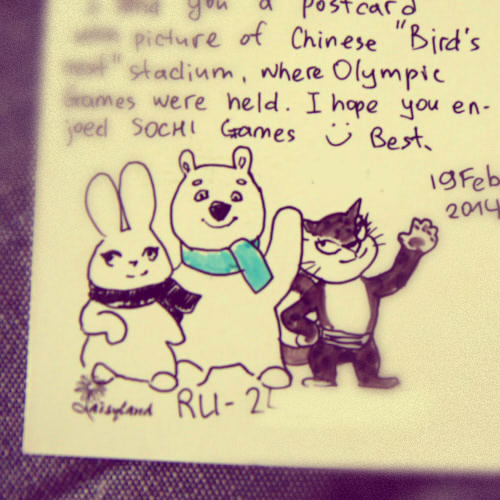 you a postcard
picture of Chinese "Bird's
" stadium, where Olympic
Games were held. I hope you en-
joed SOCHI Games Best,
19 Feb
2014
Daisyland
RU-2